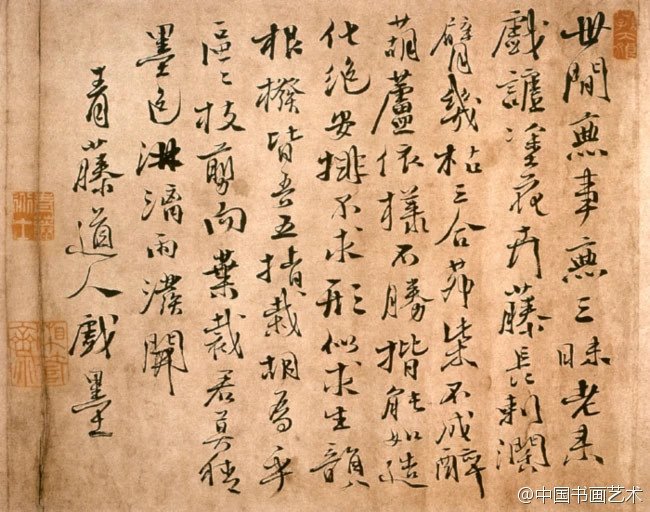 世間無事無三昧老來
戲謔塗花卉藤長刺闊
臂幾枯三合茅柴不成醉
葫蘆依樣不勝揩能如造
化絕安排不求形似求生韻
根撥皆吾五指栽胡為乎
區〻枝剪而葉裁君莫猜
墨色淋漓雨潑開
青藤道人戲墨
@中国书画艺术